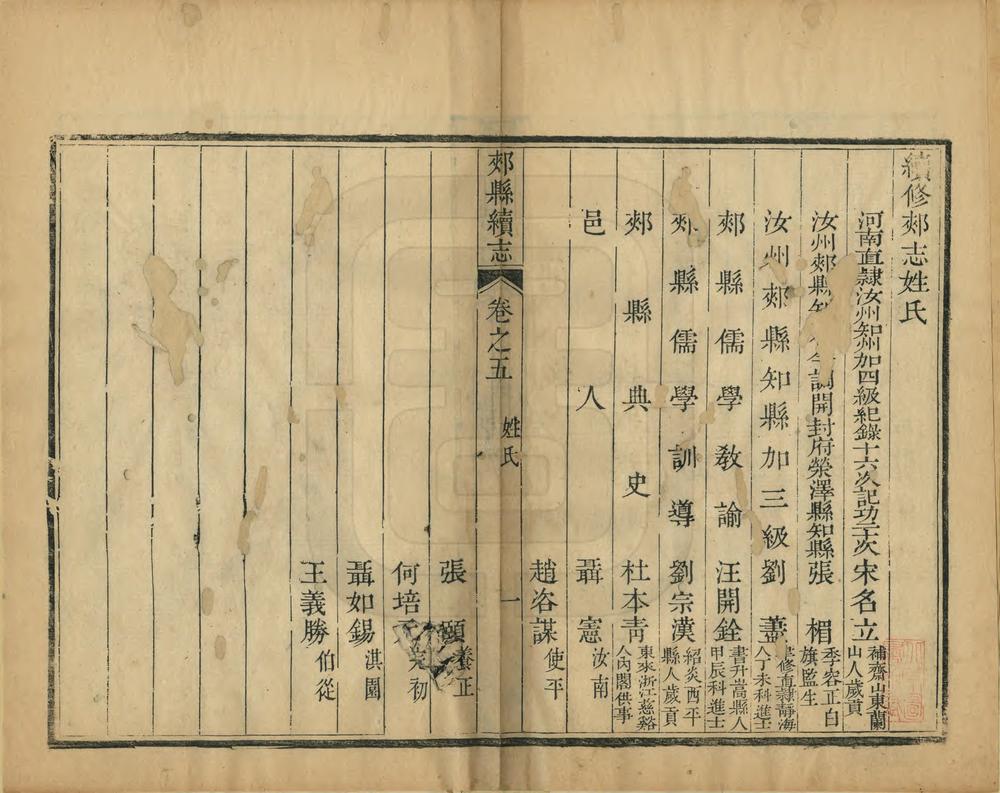 續修郟志姓氏
河南直隸汝州知州加四級紀錄十六次記功三十次宋名立補齋山東蘭山人歲貢
汝州郟縣知 今調開封府滎澤縣知縣張楣季容正白旗監生
汝州郟縣知縣加三級劉蓋 修直隸靜海人丁未科進士
郟縣儒學敎諭汪開銓書升嵩縣人甲辰科進士
郟縣儒學訓導劉宗漢紹炎西平縣人歲貢
郟縣典史杜本青東來浙江慈谿人內閣供事
邑人聶憲汝南
趙洛謀使平
郟縣續志 卷之五 姓氏 一
張頤養正
何培元 初
聶如錫淇園
王義勝伯從